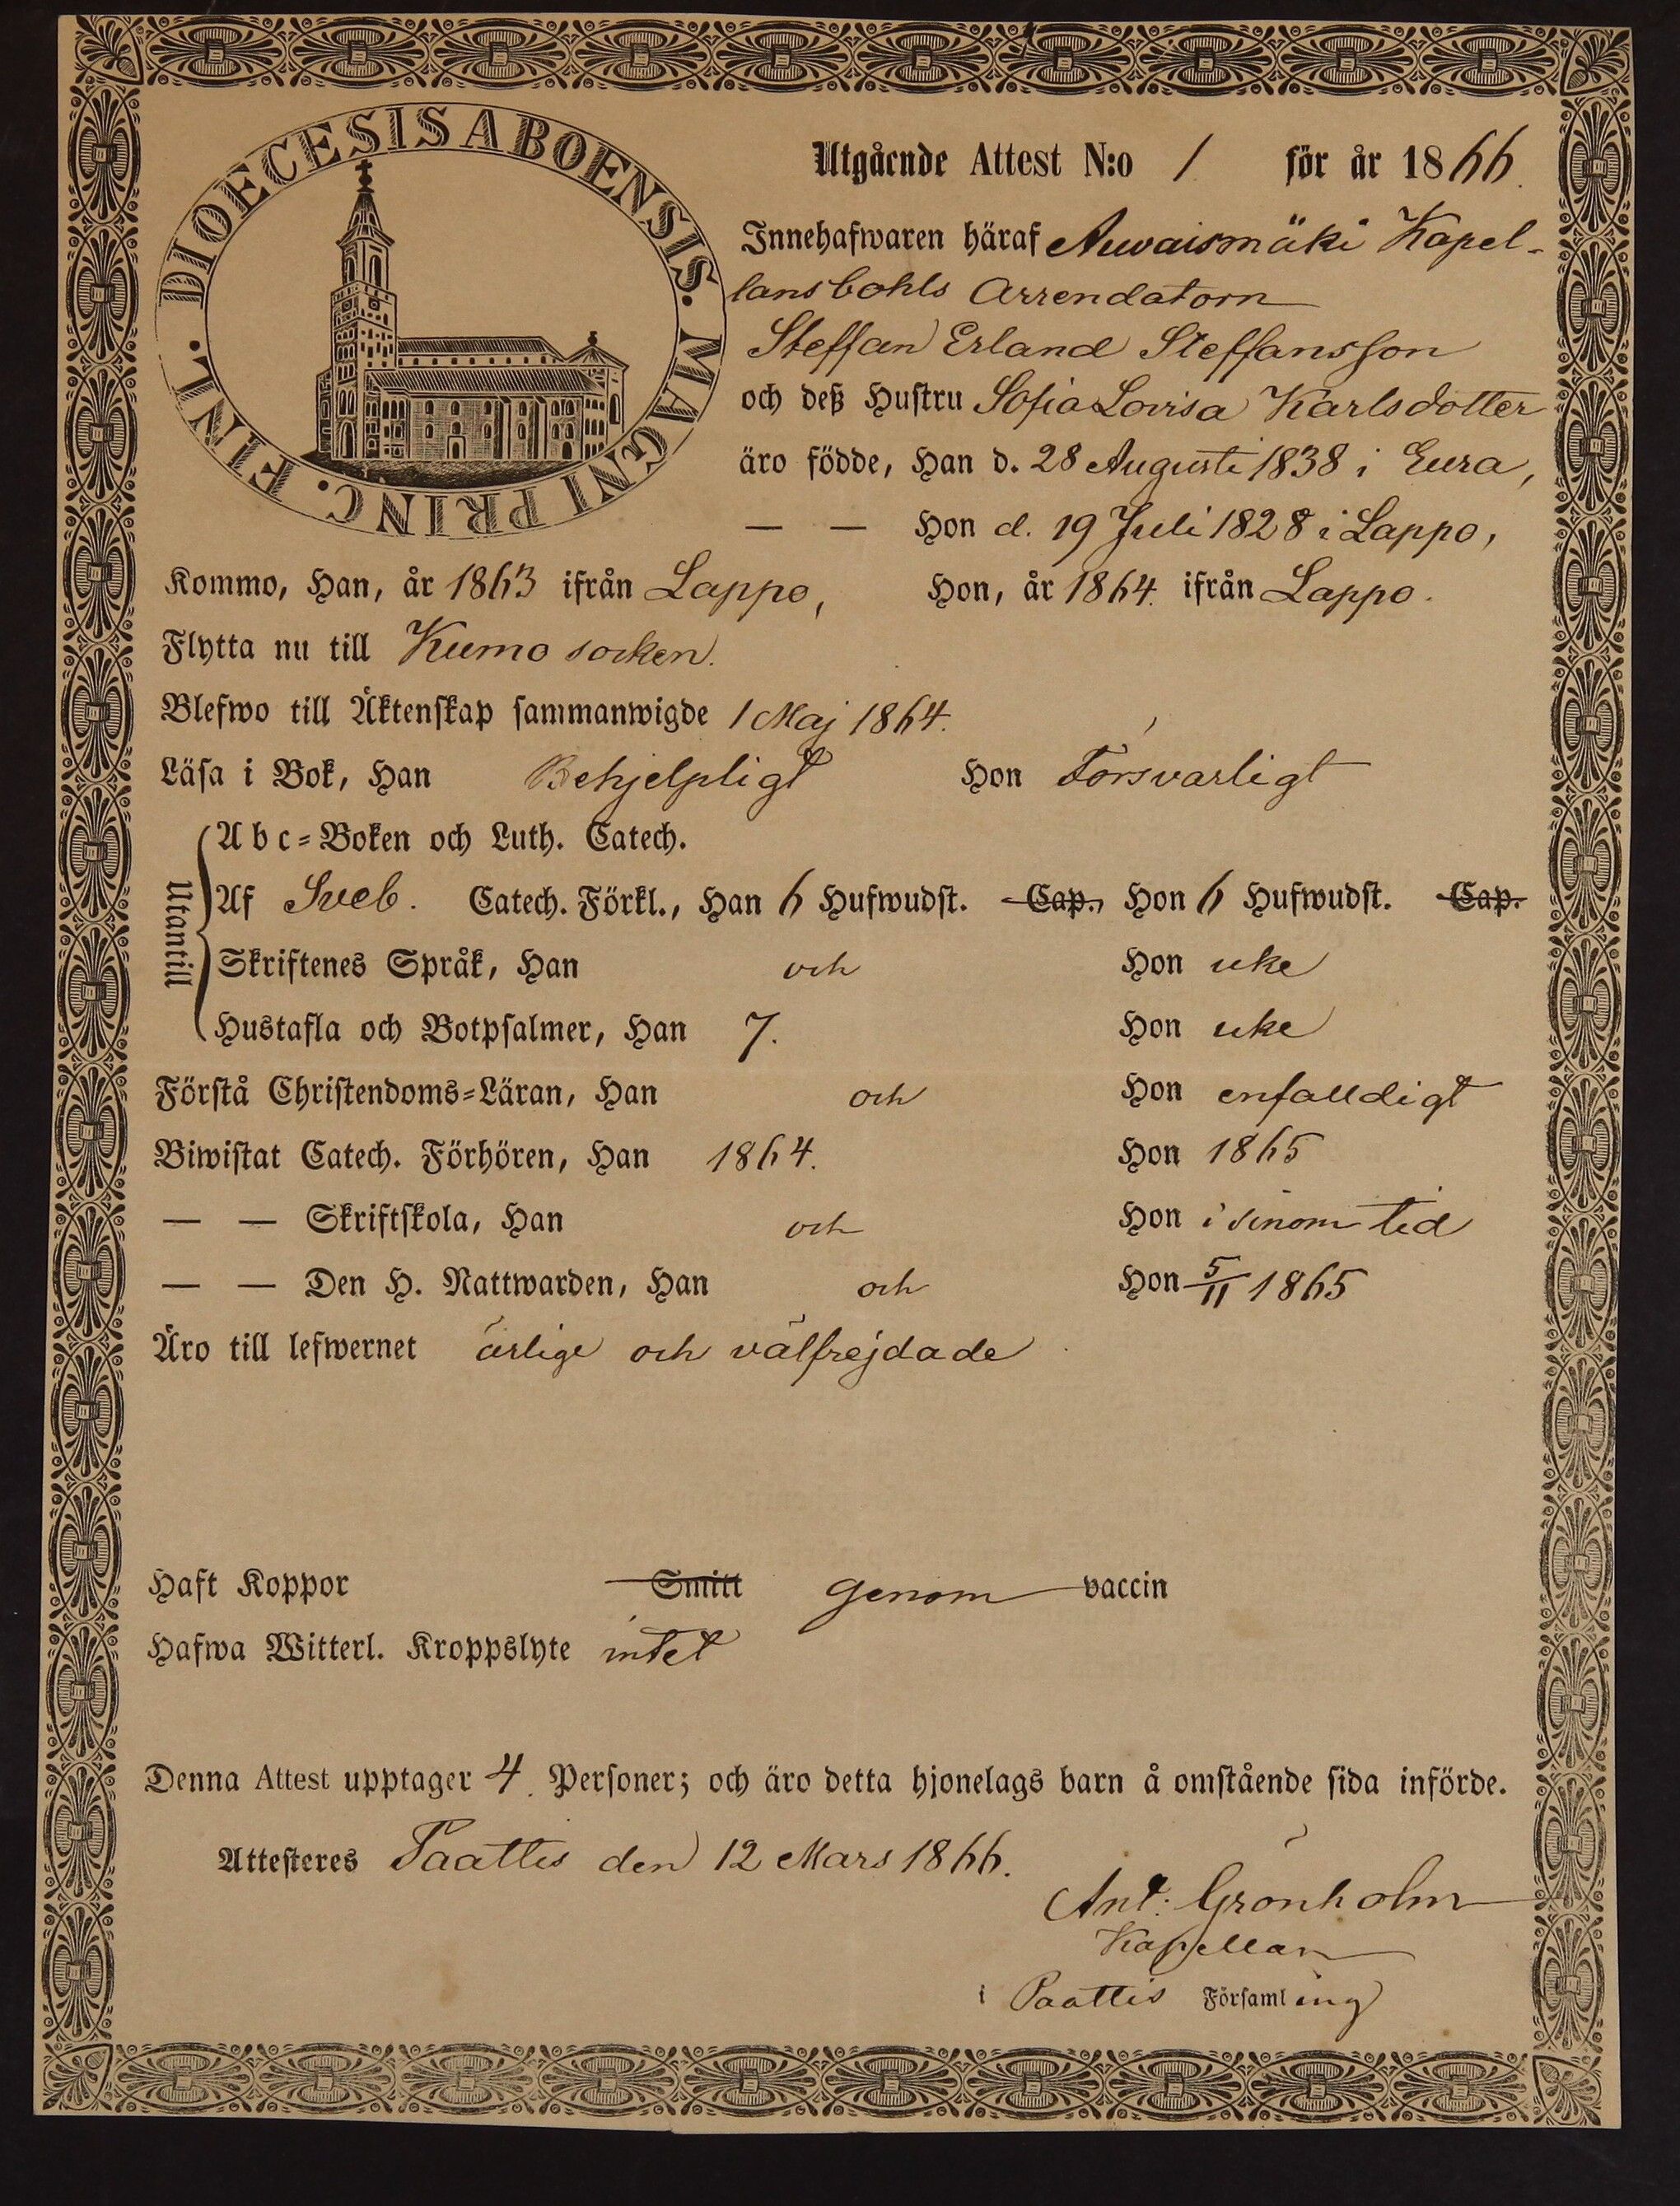 DIOECESIS ABOENSIS. MAGNI PRINC. FINL.
Utgående Attest N:o 1 för år 1866.
Innehafwaren häraf Auvaismäki Kapel-
lansbohls Arrendatorn
Steffan Erland Steffansson
och deß Hustru Sofia Lovisa Karlsdotter
äro födde, Han d. 28 Augusti 1838 i Eura,
— — Hon d. 19 Juli 1828 i Lappo,
Kommo, Han, år 1863 ifrån Lappo, Hon, år 1864. ifrån Lappo.
Flytta nu till Kumo socken.
Blefwo till Äktenskap sammanwigde 1 Maj 1864.
Läsa i Bok, Han Behjelpligt Hon Försvarligt
Utantill
Abc-Boken och Luth. Catech.
Af Sveb. Catech. Förkl., Han 6 Hufwudst. Cap., Hon 6 Hufwudst. Cap.
Skriftenes Språk, Han och Hon icke
Hustafla och Botpsalmer, Han 7. Hon icke
Förstå Christendoms-Läran, Han och Hon enfalldigt
Biwistat Catech. Förhören, Han 1864. Hon 1865
— — Skriftskola, Han och Hon i sinom tid
— — Den H. Nattwarden, Han och Hon 5/11 1865
Äro till lefwernet ärlige och välfrejdade
Haft Koppor Smitt genom vaccin
Hafwa Witterl. Kroppslyte intet
Denna Attest upptager 4. Personer; och äro detta hjonelags barn å omstående sida införde.
Attesteres Paattis den 12 Mars 1866.
Ant: Grönholm
Kapellan
i Paattis Församling